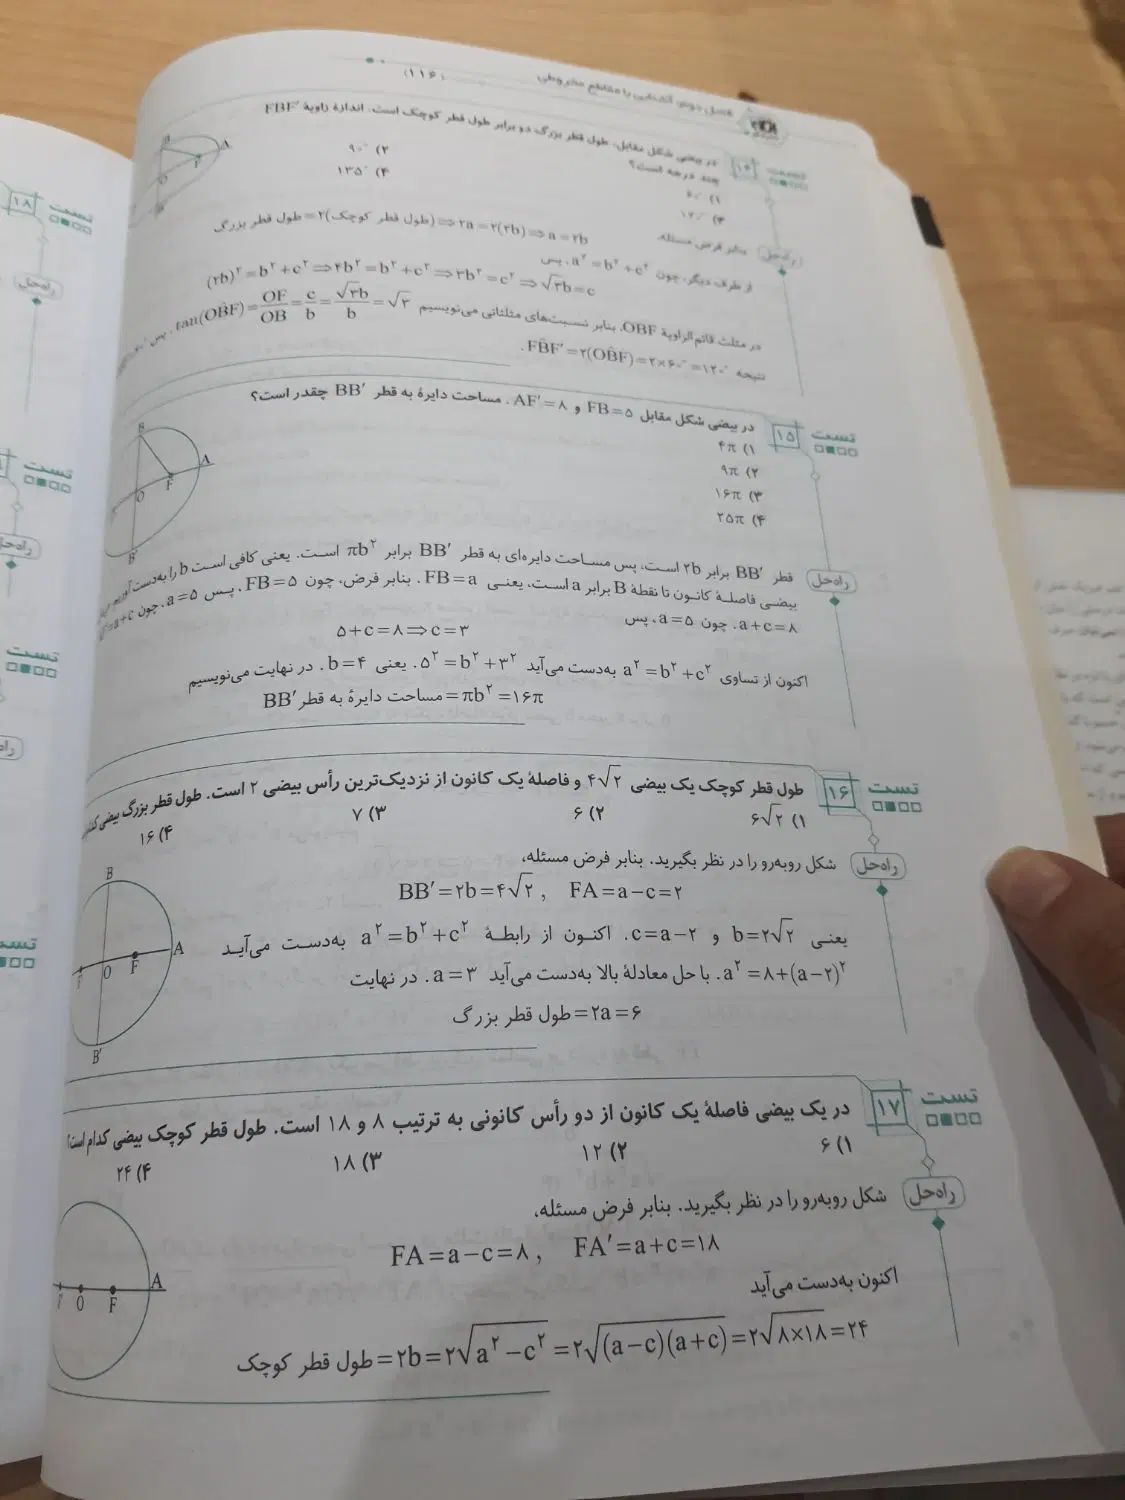 فصل دوم: آشنایی با مقاطع مخروطی (۱۱۶)
تست ۱۴ در بیضی شکل مقابل، طول قطر بزرگ دو برابر طول قطر کوچک است. اندازهٔ زاویهٔ FBF′
چند درجه است؟
۱) ۶۰° ۲) ۹۰°
۳) ۱۲۰° ۴) ۱۳۵°
راه‌حل بنابر فرض مسئله،
طول قطر بزرگ = ۲(طول قطر کوچک) ⇒ ۲a = ۲(۲b) ⇒ a = ۲b
از طرف دیگر، چون a² = b² + c²، پس
(۲b)² = b² + c² ⇒ ۴b² = b² + c² ⇒ ۳b² = c² ⇒ √۳b = c
در مثلث قائم‌الزاویهٔ OBF، بنابر نسبت‌های مثلثاتی می‌نویسیم tan(OB̂F) = OF/OB = c/b = √۳b/b = √۳. پس
نتیجه FB̂F′ = ۲(OB̂F) = ۲×۶۰° = ۱۲۰°.
B
A
F
O
تست ۱۵ در بیضی شکل مقابل FB = ۵ و AF′ = ۸. مساحت دایرهٔ به قطر BB′ چقدر است؟
۱) ۴π
۲) ۹π
۳) ۱۶π
۴) ۲۵π
B
A
F
O
B′
راه‌حل قطر BB′ برابر ۲b است، پس مساحت دایره‌ای به قطر BB′ برابر πb² است. یعنی کافی است b را به‌دست آوریم.
بیضی فاصلهٔ کانون تا نقطهٔ B برابر a است، یعنی FB = a. بنابر فرض، چون FB = ۵، پس a = ۵. چون = a + c
a + c = ۸. چون a = ۵، پس
۵ + c = ۸ ⇒ c = ۳
اکنون از تساوی a² = b² + c² به‌دست می‌آید ۵² = b² + ۳². یعنی b = ۴. در نهایت می‌نویسیم
مساحت دایرهٔ به قطر BB′ = πb² = ۱۶π
تست ۱۶ طول قطر کوچک یک بیضی ۴√۲ و فاصلهٔ یک کانون از نزدیک‌ترین رأس بیضی ۲ است. طول قطر بزرگ بیضی
۱) ۶√۲ ۲) ۶ ۳) ۷ ۴) ۱۶
راه‌حل شکل روبه‌رو را در نظر بگیرید. بنابر فرض مسئله،
BB′ = ۲b = ۴√۲ , FA = a − c = ۲
یعنی b = ۲√۲ و c = a − ۲. اکنون از رابطهٔ a² = b² + c² به‌دست می‌آید
a² = ۸ + (a − ۲)². با حل معادلهٔ بالا به‌دست می‌آید a = ۳. در نهایت
طول قطر بزرگ = ۲a = ۶
B
A
F
O
F′
B′
تست ۱۷ در یک بیضی فاصلهٔ یک کانون از دو رأس کانونی به ترتیب ۸ و ۱۸ است. طول قطر کوچک بیضی کدام است؟
۱) ۶ ۲) ۱۲ ۳) ۱۸ ۴) ۲۴
راه‌حل شکل روبه‌رو را در نظر بگیرید. بنابر فرض مسئله،
FA = a − c = ۸ , FA′ = a + c = ۱۸
اکنون به‌دست می‌آید
طول قطر کوچک = ۲b = ۲√(a² − c²) = ۲√((a − c)(a + c)) = ۲√(۸×۱۸) = ۲۴
A
F
O
F′
تست ۱۸
راه‌حل
تست
راه‌حل
تست
راه‌
تست